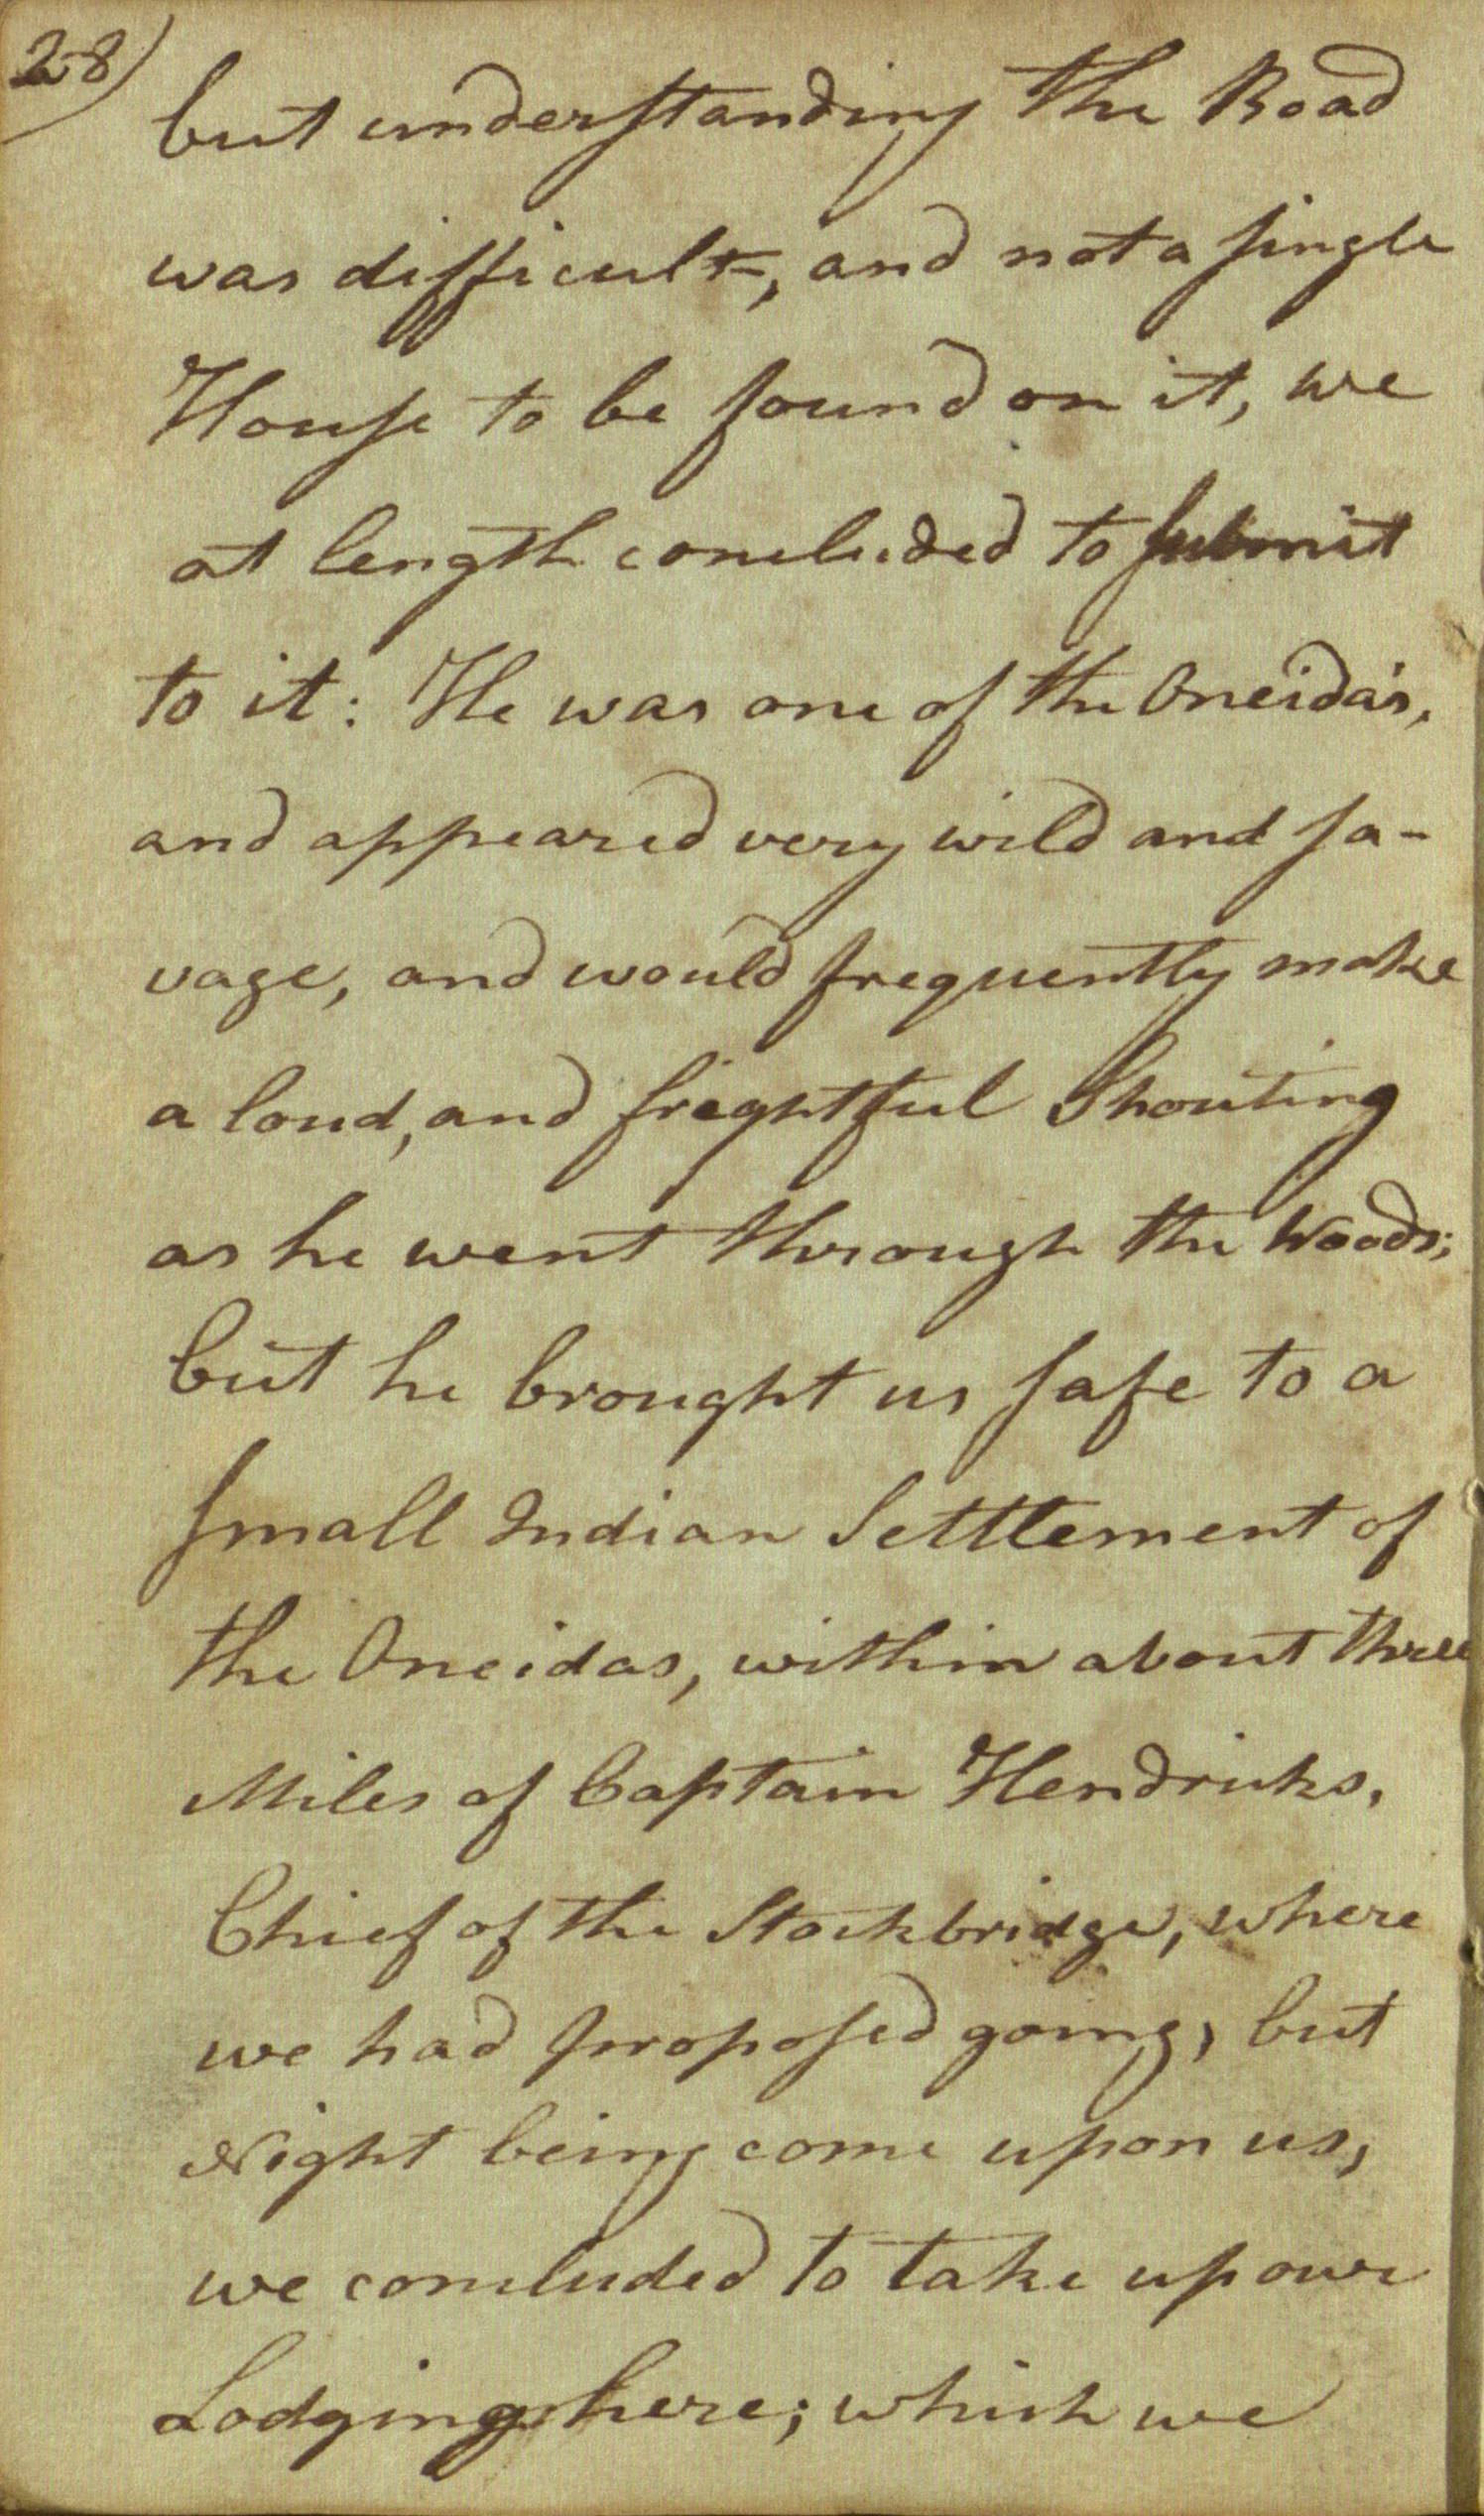 28)
but understanding the Road
was difficult, and not a single
House to be found on it, we
at length concluded to submit
to it: He was one of the Oneida's,
and appeared very wild and sa-
vage, and would frequently make
a loud, and frightful Shouting
as he went through the Woods;
but he brought us safe to a
small Indian Settlement of
the Oneidas, within about three
Miles of Captain Hendricks,
Chief of the Stockbridge, where
we had proposed going, but
Night being come upon us,
we concluded to take up our
Lodging here; which we